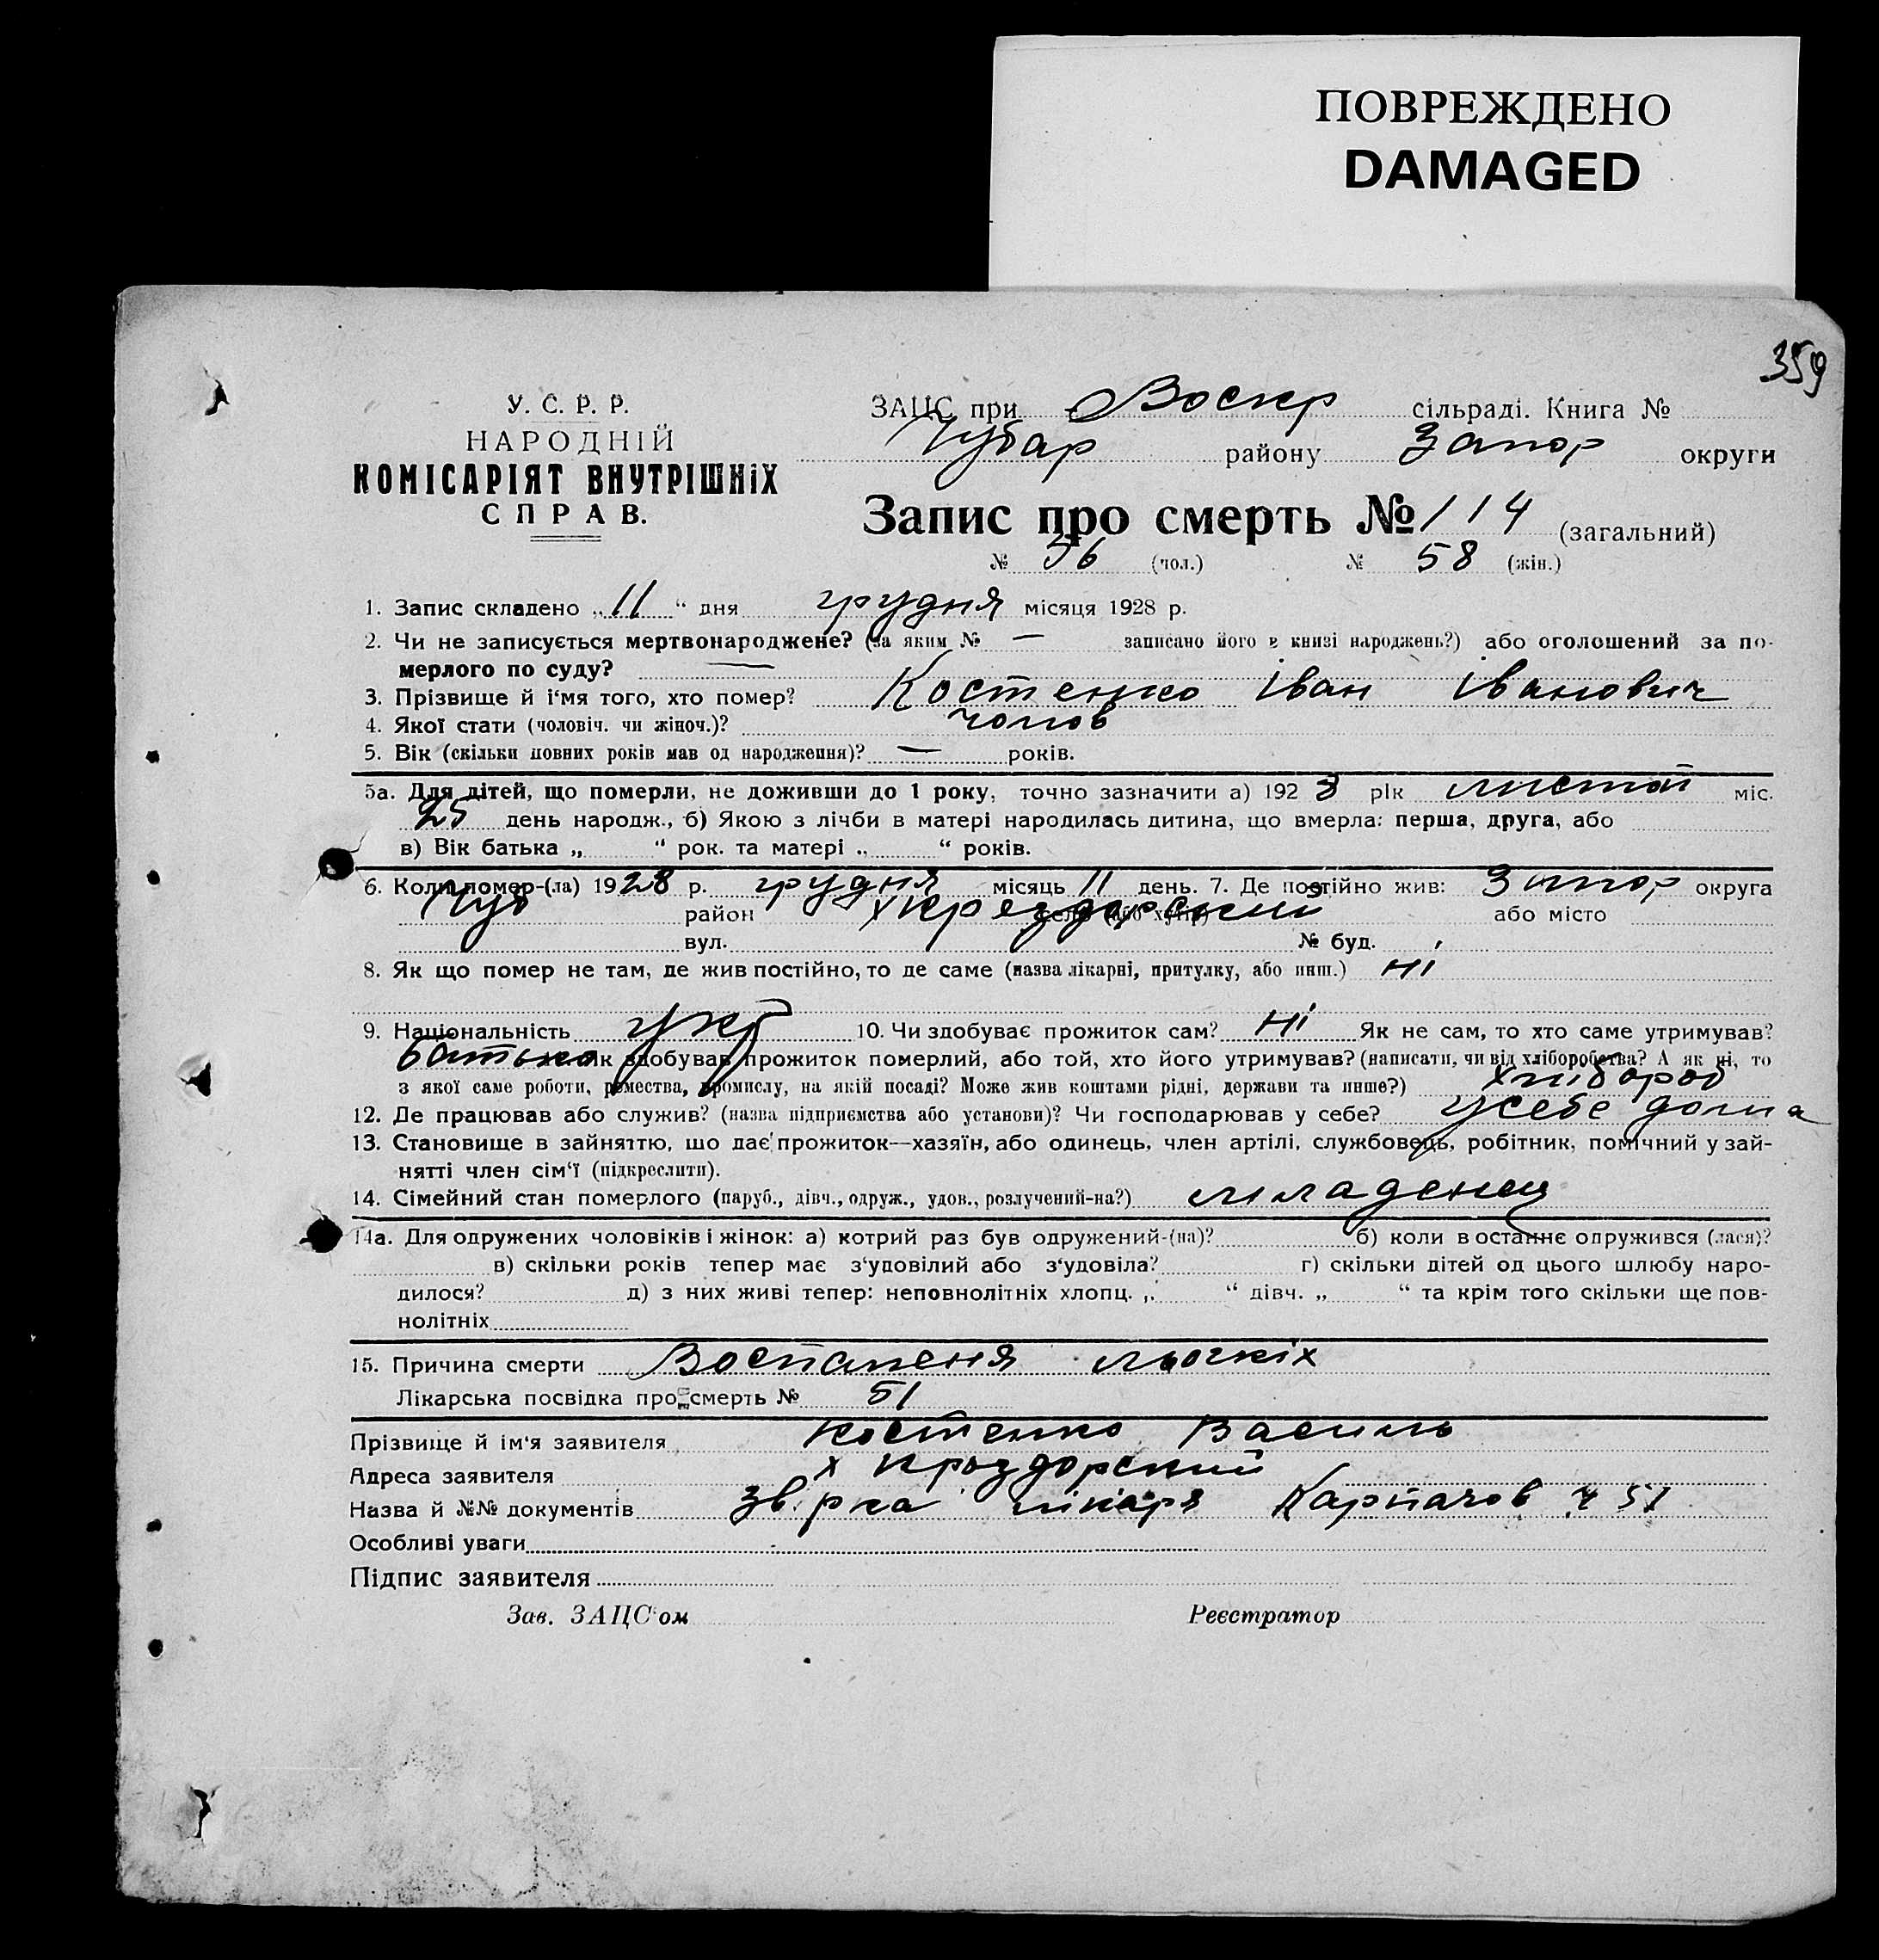 ПОВРЕЖДЕНО
DAMAGED
359
У. С. Р. Р.
НАРОДНІЙ
КОМІСАРІЯТ ВНУТРІШНІХ
СПРАВ.
ЗАЦС при Воскр сільраді. Книга №
Чубар району Запор округи
Запис про смерть № 114 (загальний)
№ 56 (чол.) № 58 (жін.)
1. Запис складено „11“ дня грудня місяця 1928 р.
2. Чи не записується мертвонароджене? (за яким № — записано його в книзі народжень?) або оголошений за по-
мерлого по суду? —
3. Прізвище й і‘мя того, хто помер? Костенко Іван Іванович
4. Якої стати (чоловіч. чи жіноч.)? чолов
5. Вік (скільки повних років мав од народження)? — років.
5а. Для дітей, що померли, не доживши до 1 року, точно зазначити а) 1928 рік листоп міс.
25 день народж., б) Якою з лічби в матері народилась дитина, що вмерла: перша, друга, або
в) Вік батька „ “ рок. та матері „ “ років.
6. Коли помер-(ла) 1928 р. грудня місяць 11 день. 7. Де постійно жив: Запор округа
Чуб район х село (або хутір) або місто
вул. № буд.
8. Як що помер не там, де жив постійно, то де саме (назва лікарні, притулку, або инш.) ні
9. Національність укр 10. Чи здобуває прожиток сам? ні Як не сам, то хто саме утримував?
батько як здобував прожиток померлий, або той, хто його утримував? (написати, чи від хліборобства? А як ні, то
з якої саме роботи, ремества, промислу, на якій посаді? Може жив коштами рідні, держави та инше?) хлібороб
12. Де працював або служив? (назва підприємства або установи)? Чи господарював у себе? усебе дома
13. Становище в зайняттю, що дає прожиток—хазяїн, або одинець, член артілі, службовець, робітник, помічний у зай-
нятті член сім‘ї (підкреслити).
14. Сімейний стан померлого (паруб., дівч., одруж., удов., розлучений-на?) младенец
14а. Для одружених чоловіків і жінок: а) котрий раз був одружений-(на)? б) коли в останнє одружився (лася)?
в) скільки років тепер має з‘удовілий або з‘удовіла? г) скільки дітей од цього шлюбу наро-
дилося? д) з них живі тепер: неповнолітніх хлопц. „ “ дівч. „ “ та крім того скільки ще пов-
нолітніх
15. Причина смерти Воспаленя льогкіх
Лікарська посвідка про смерть № 51
Прізвище й ім‘я заявителя Костенко Василь
Адреса заявителя х
Назва й №№ документів лікаря 51
Особливі уваги
Підпис заявителя
Зав. ЗАЦС‘ом Реєстратор